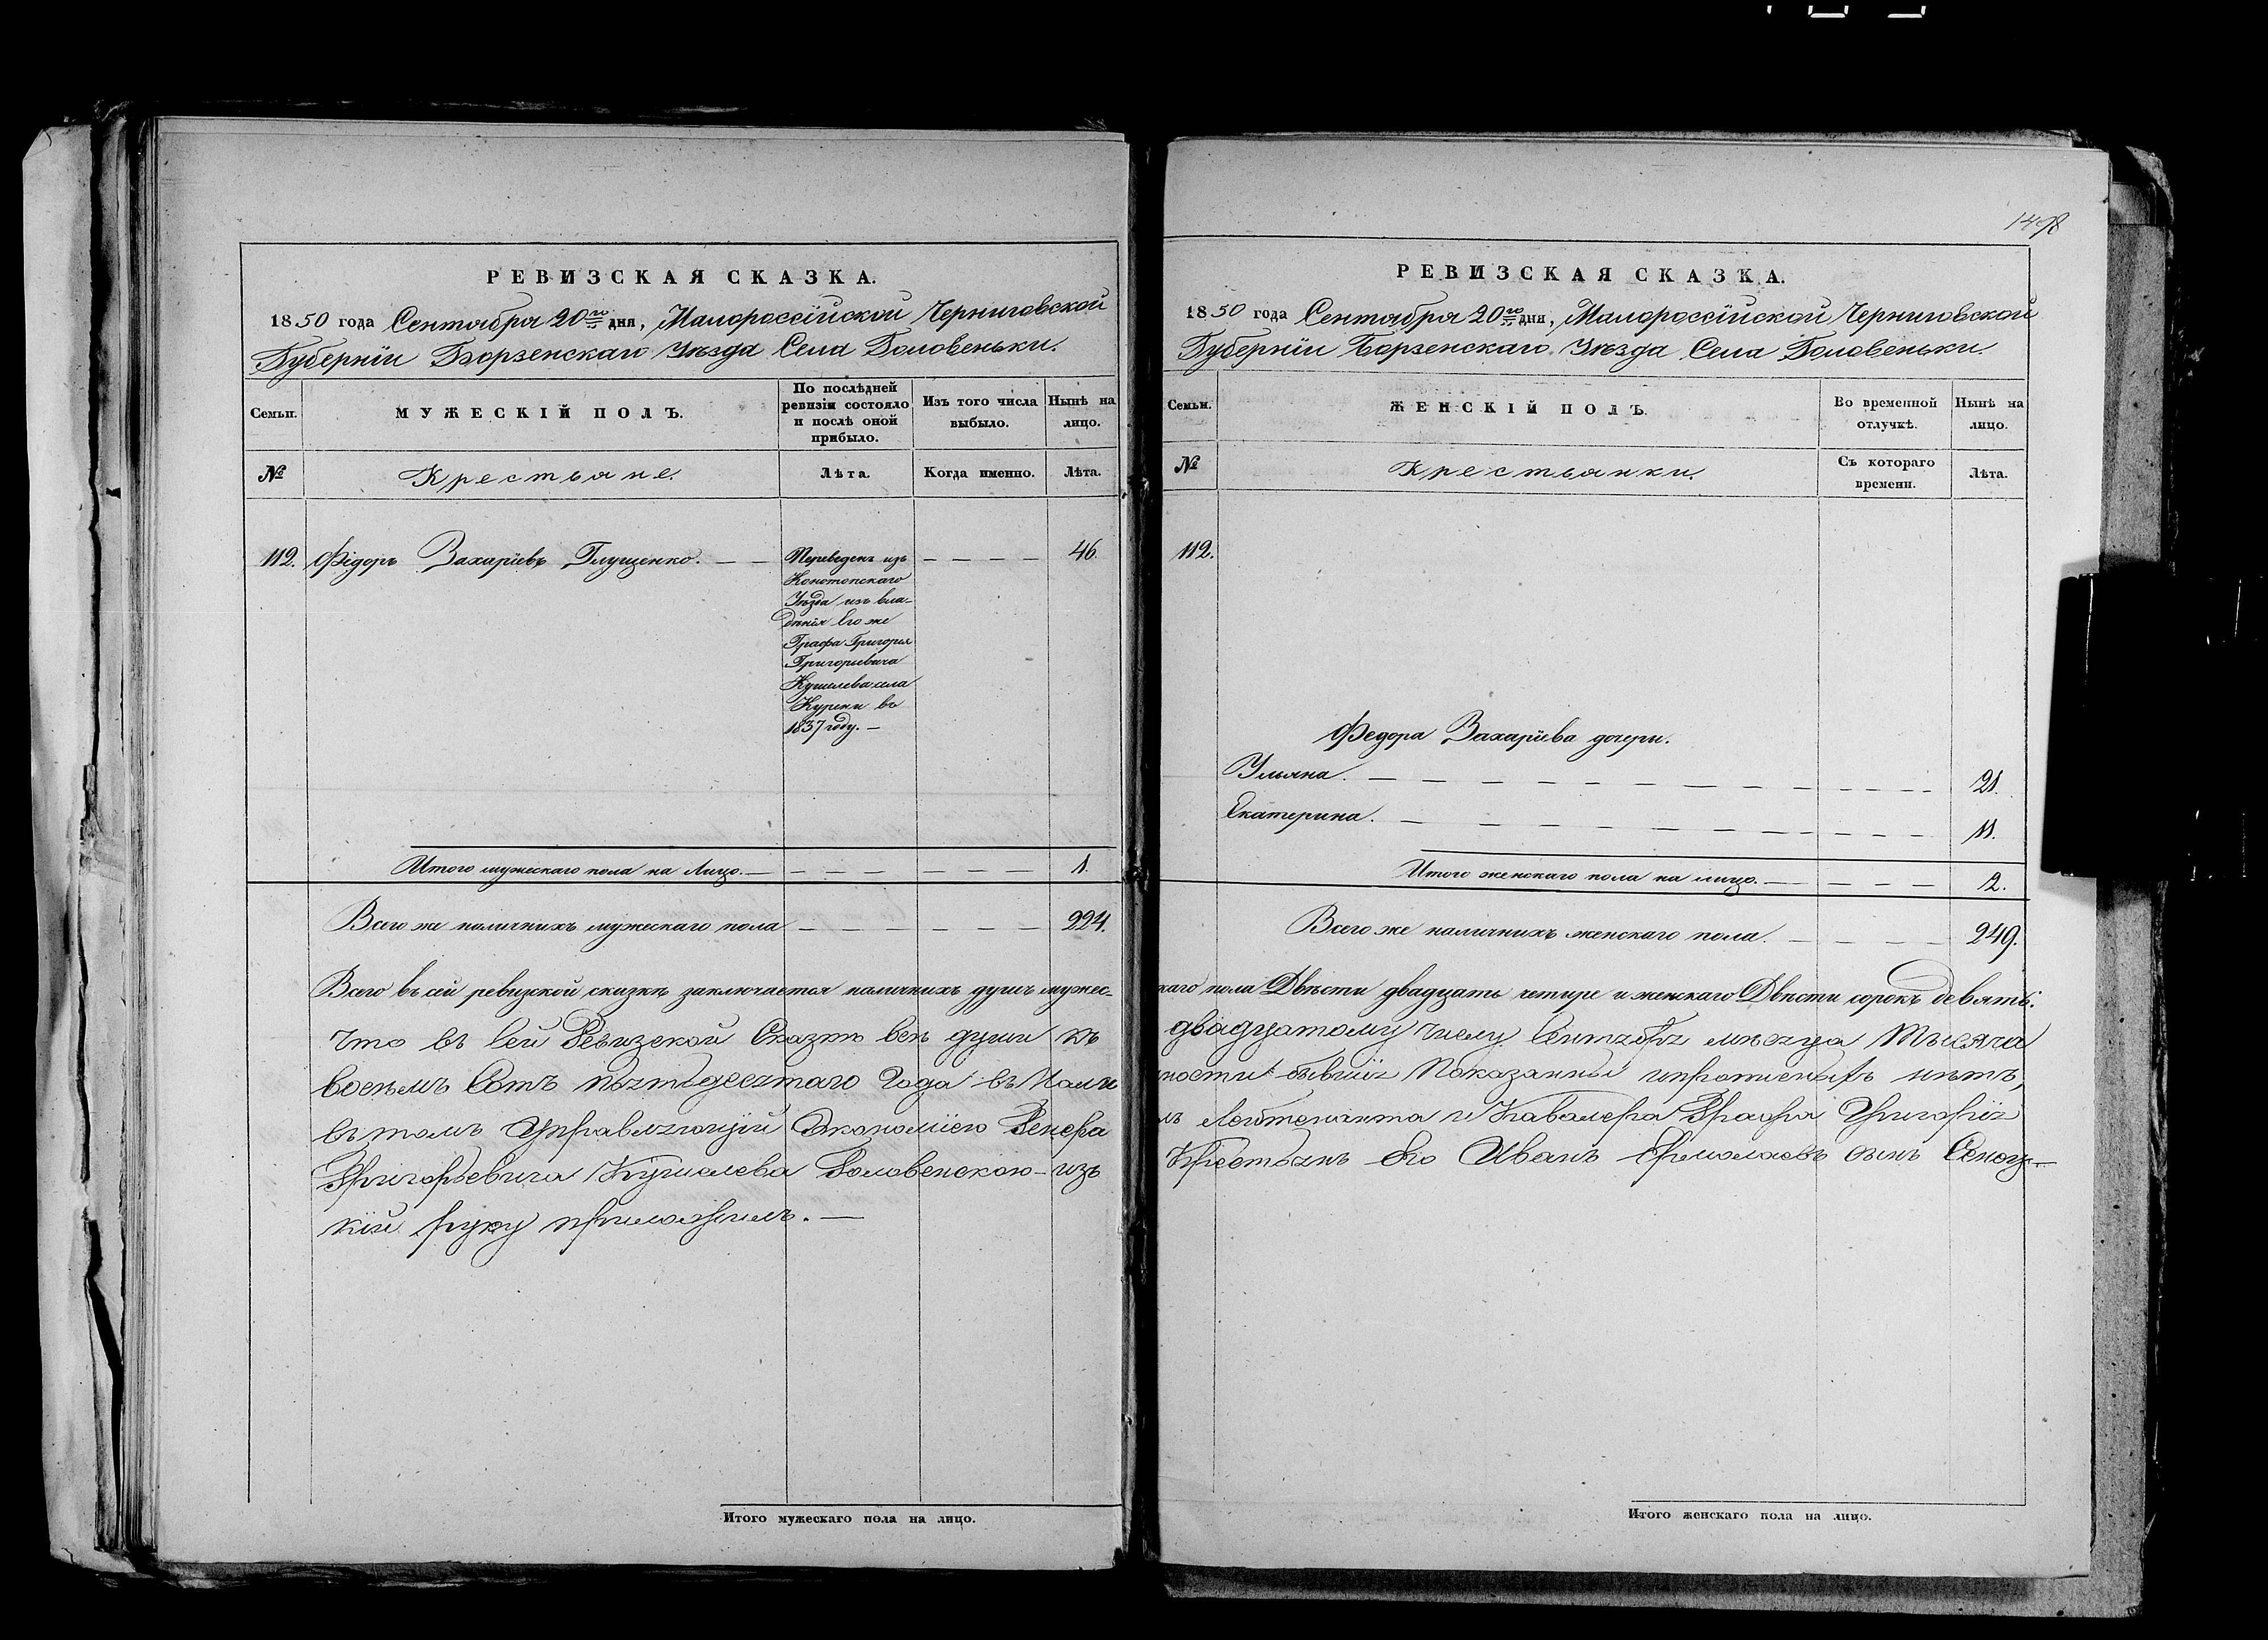 1498
РЕВИЗСКАЯ СКАЗКА.
1850 года Сентября 20го дня, Малороссійской Черниговской
Губерніи Борзенскаго Уѣзда Села Головеньки.
Семьи.
МУЖЕСКІЙ ПОЛЪ.
По послѣдней
ревизіи состояло
и послѣ оной
прибыло.
Изъ того числа
выбыло.
Нынѣ на
лицо.
№
Крестьяне.
Лѣта.
Когда именно.
Лѣта.
112. Фідоръ Захаріевъ Глущенко. 46
Переведенъ изъ
Конотопскаго
Уѣзда изъ вла-
дѣнія Его же
Графа Григорія
Григорьевича
Кушелева села
Курени во
1837 году. —
Итого мужескаго пола на Лицо. — 1.
Всего же наличнихъ мужескаго пола 224.
Всего въ сей ревизской сказкѣ заключается наличнихъ душъ мужес-
Что въ Сей Ревизской Сказкѣ всѣ души къ
восемъ Сотъ пятдесятаго Года въ Нали
въ томъ Управляющій Экономіею Генера
Григорьевича Кушелева Головенскою — изъ
кій руку приложилъ. —
Итого мужескаго пола на лицо.
РЕВИЗСКАЯ СКАЗКА.
1850 года Сентября 20го дня, Малороссійской Черниговской
Губерніи Борзенскаго Уѣзда Села Головеньки.
Семьи.
ЖЕНСКІЙ ПОЛЪ.
Во временной
отлучкѣ.
Нынѣ на
лицо.
№
Крестьянки.
Съ котораго
времени.
Лѣта.
112.
Федора Захаріева дочери.
Ульяна. 21.
Екатерина. 11.
Итого женскаго пола на лицо. — 2.
Всего же наличнихъ женскаго пола. 249.
каго пола Двѣсти двадцать четире и женскаго Двѣсти сорокъ девять.
двадцатому числу Сентября мѣсяца Тысяча
ности бывшія Показанны и прописныхъ нѣтъ,
лъ Лейтенанта и Кавалера Графа Григорія
Крестьянъ Его Иванъ Ермолаевъ сынъ Сеноц—
Итого женскаго пола на лицо.